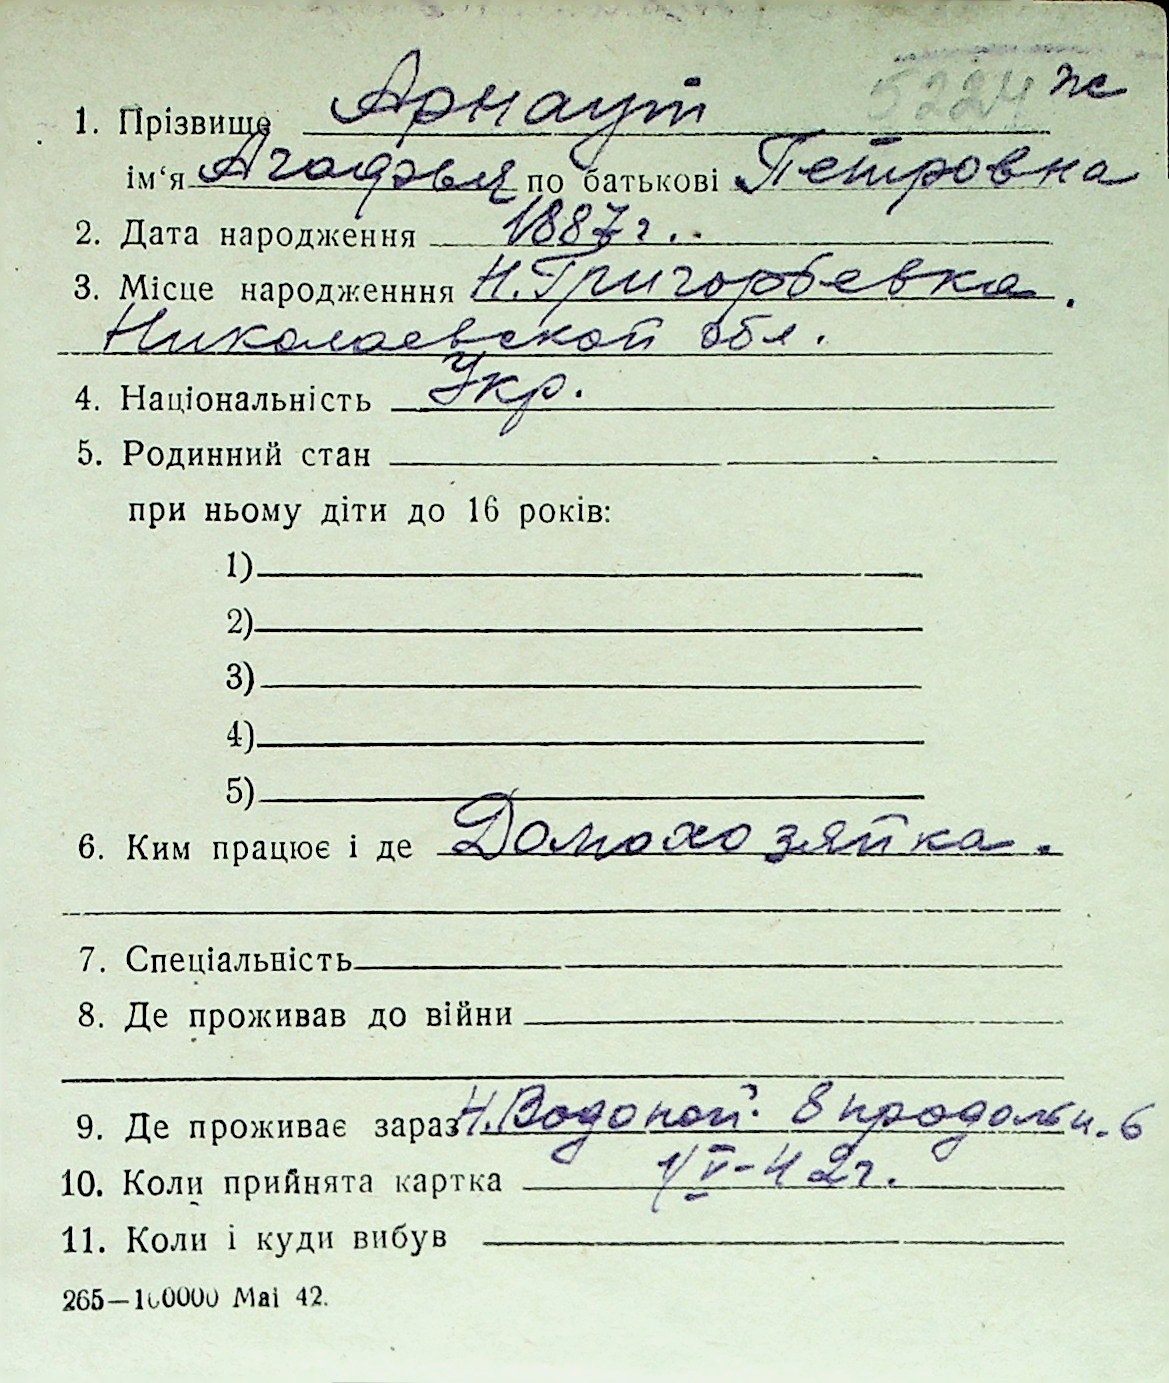 5224 ж
1. Прізвище Арнаут
ім‘я Агафья по батькові Петровна
2. Дата народження 1887 г.
3. Місце народженння Н. Григорьевка.
Николаевской обл.
4. Національність Укр.
5. Родинний стан
при ньому діти до 16 років:
1)
2)
3)
4)
5)
6. Ким працює і де Домохозяйка.
7. Спеціальність
8. Де проживав до війни
9. Де проживає зараз Н. Водопой 8 продольн. 6
10. Коли прийнята картка 1/V-42 г.
11. Коли і куди вибув
265—100000 Mai 42.